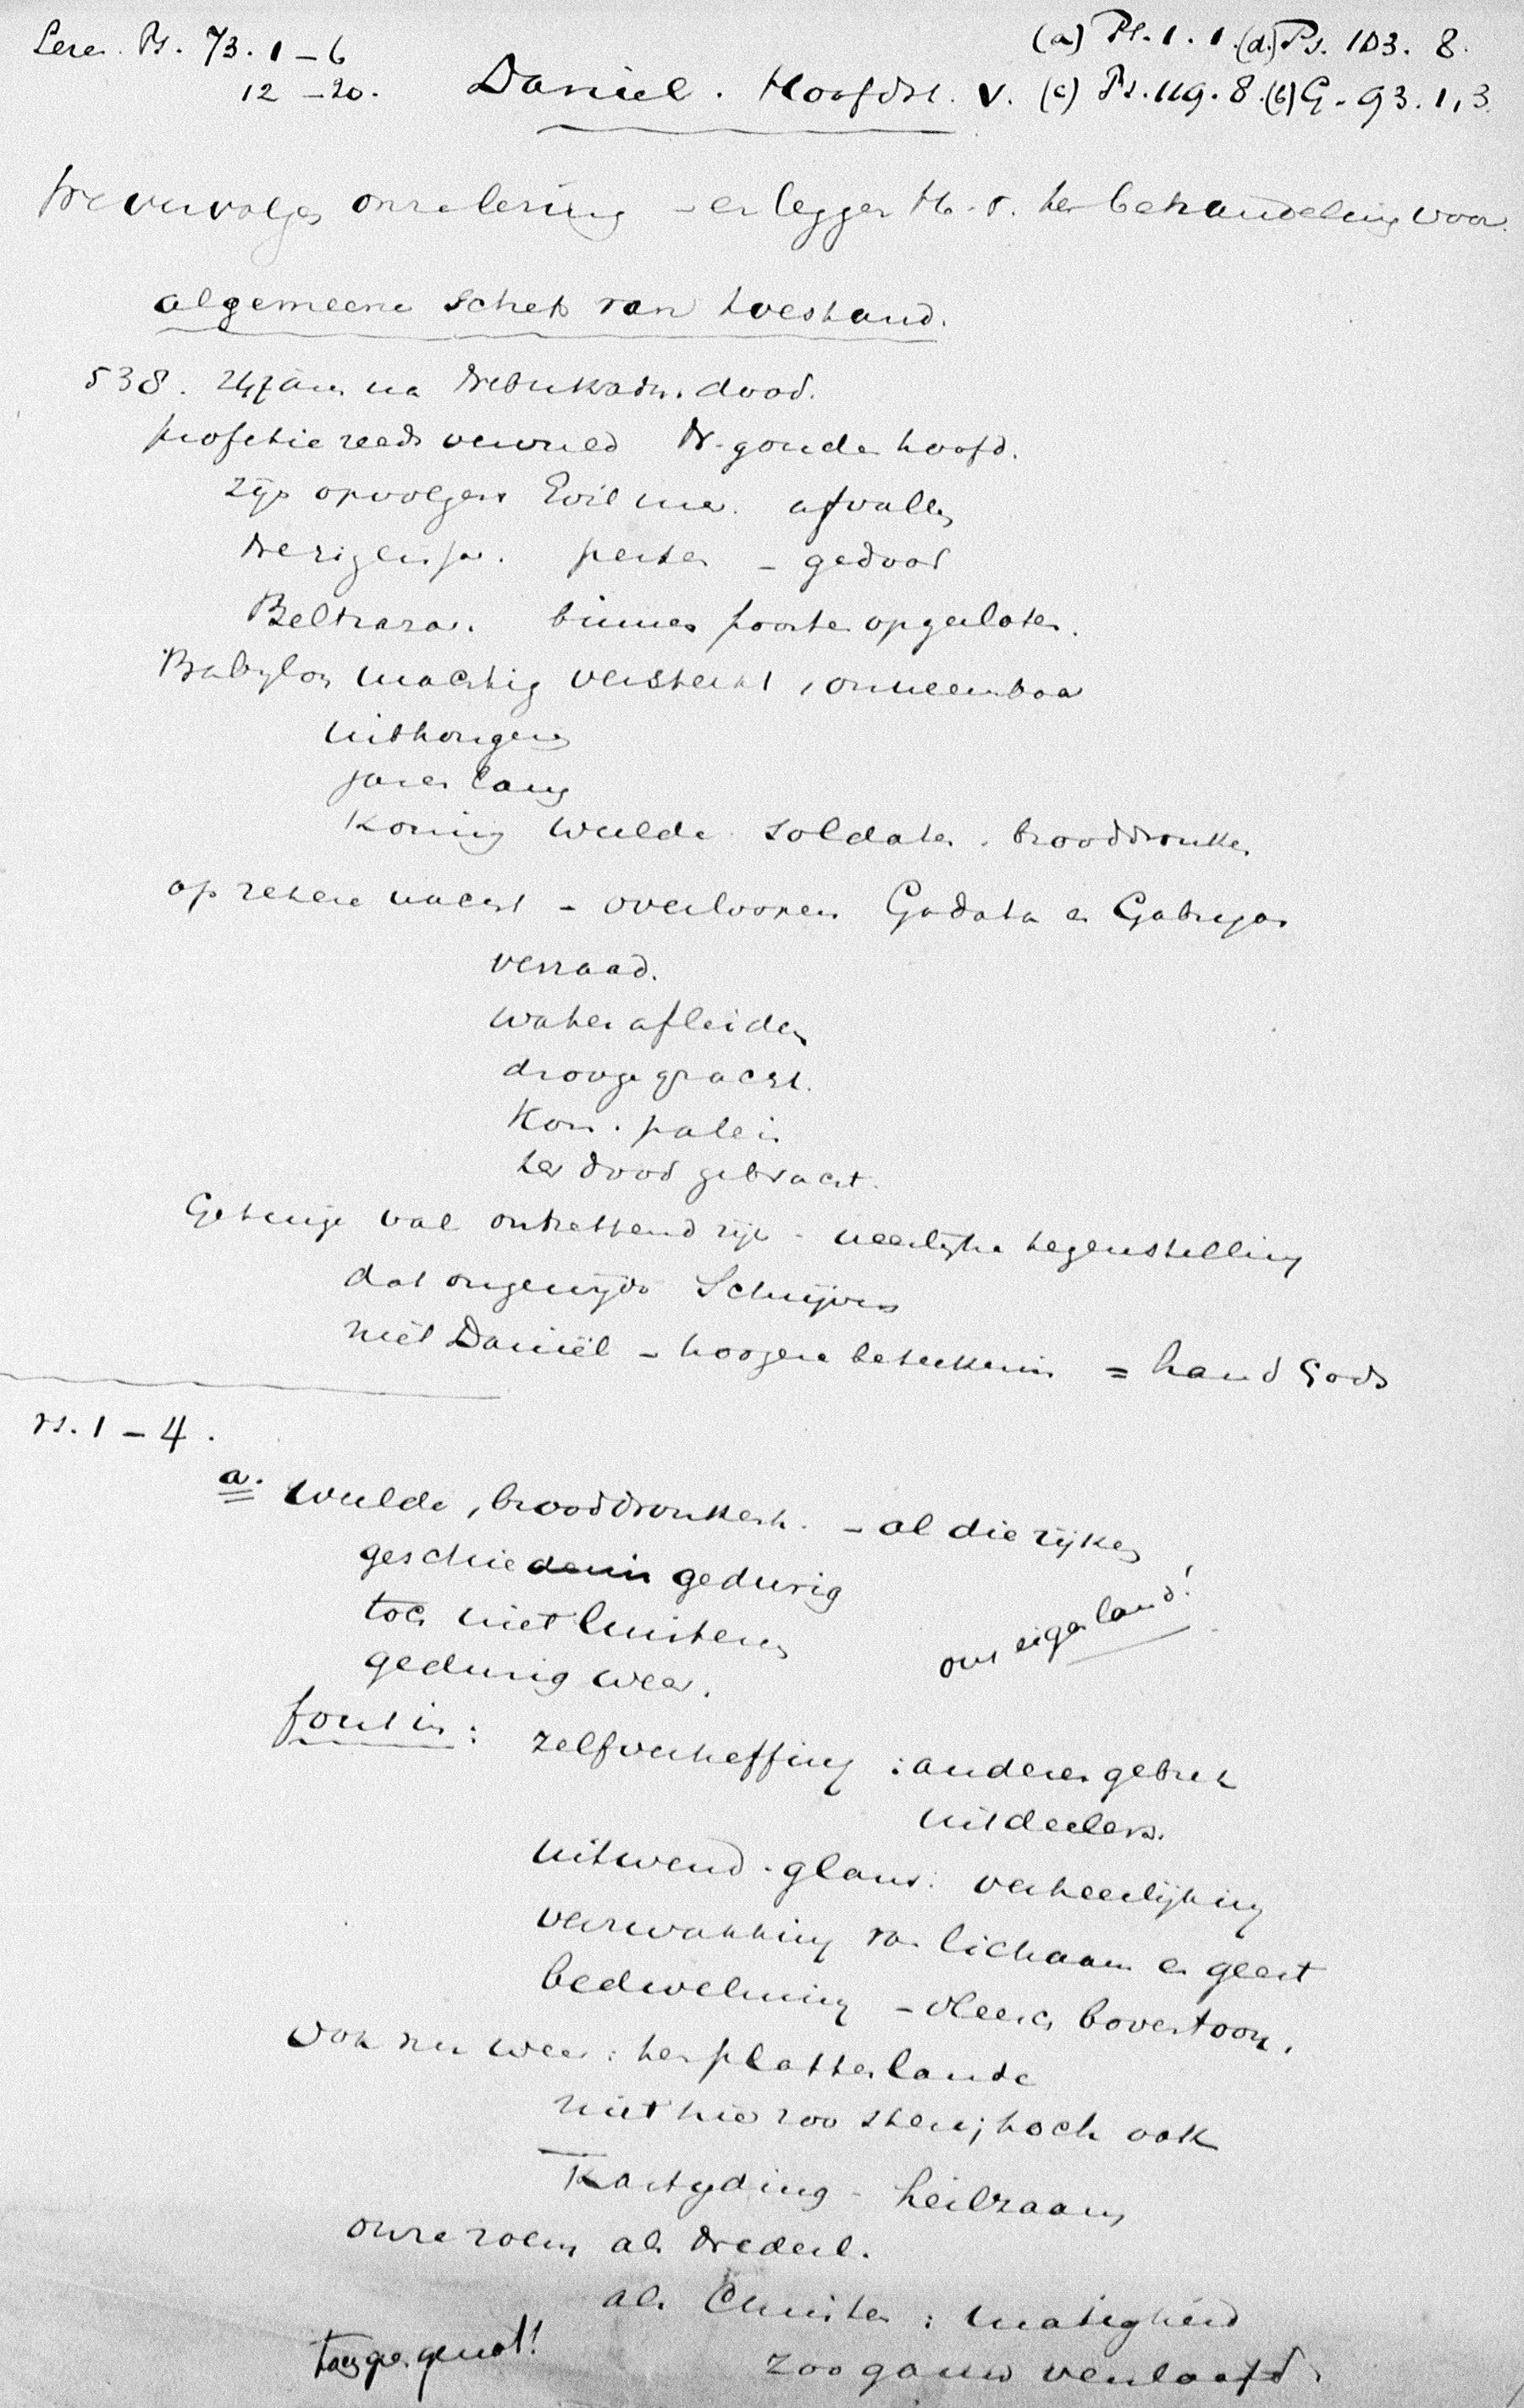 Leze. Ps. 73. 1-6
12-20.
(a) Ps. 1. 1. (d.) Ps. 103. 8.
Daniel. Hoofdst. V. (c) Ps. 119. 8. (b) G. 93. 1,3
We vervolgen onze lezing - en leggen H. 5. ter behandeling voor.
algemeene schets van toestand.
538. 24 jaar na Nebukadn. dood.
profetie reeds vervuld N. gouden hoofd.
zijn opvolgers Evil mer. afvallen
Neriglissar. perzen - gedood
Beltsazar. binnen poorten opgesloten.
Babylon machtig versterkt, onneembaar
uithongeren
jaren lang
Koning weelde soldaten. brooddronken
op zekere nacht - overloopers Gadata en Gobryas
verraad.
water afleiden
drooge gracht.
Kon. paleis
ter dood gebracht.
Getuige val ontzettend rijk - heerlijke tegenstelling
dat ongewijde Schrijvers
niet Daniël - hoogere beteekenis = hand Gods
vs. 1-4.
a. weelde, brooddronkenh. - al die rijken
geschiedenis gedurig
toch niet luisteren
gedurig weer.
ons eigen land!
fout in: zelfverheffing: anderen gebrek
uitdeelers.
uitwend. glans: verheerlijking
verzwakking van lichaam en geest
bedwelming - vleesch boventoon.
Ook nu weer: ten platten lande
niet hier zoo sterk, toch ook
Kastijding - heilzaam
onze roem als Nederl.
als Christen: matigheid
zoo gauw verloofd